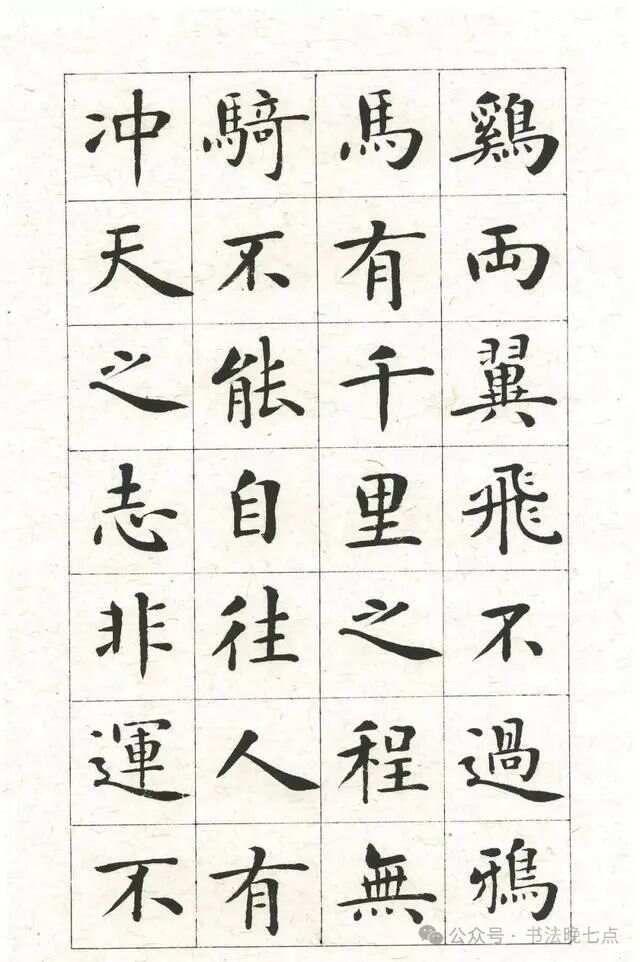 鷄両翼飛不過鴉
馬有千里之程無
騎不能自往人有
冲天之志非運不
公众号·书法晚七点